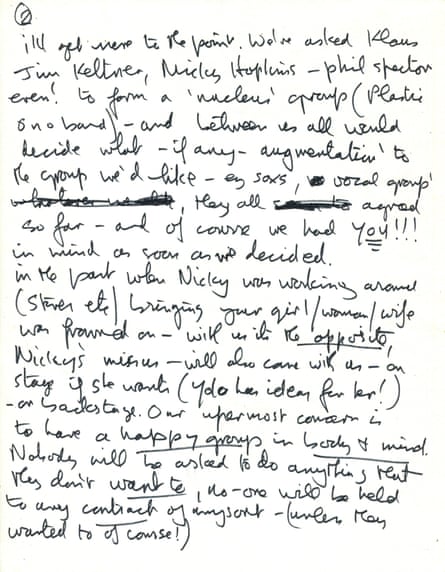 ②
i'll get more to the point. We've asked Klaus
Jim Keltner, Nicky Hopkins - Phil Spector
even! to form a 'nucleus' group (Plastic
Ono band) - and between us all would
decide what - if any - augmentation to
the group we'd like - eg saxs, vocal group'
they all agreed
so far - and of course we had YOU!!!
in mind as soon as we decided.
in the past when Nicky was working around
(Stones etc) bringing your girl/woman/wife
was frowned on - with us its the opposite,
Nicky's missus - will also come with us - on
stage if she wants (Yoko has ideas for her!)
- or backstage. Our uppermost concern is
to have a happy group in body & mind.
Nobody will be asked to do anything that
they don't want to, no-one will be held
to any contract of any sort - (unless they
wanted to of course!)